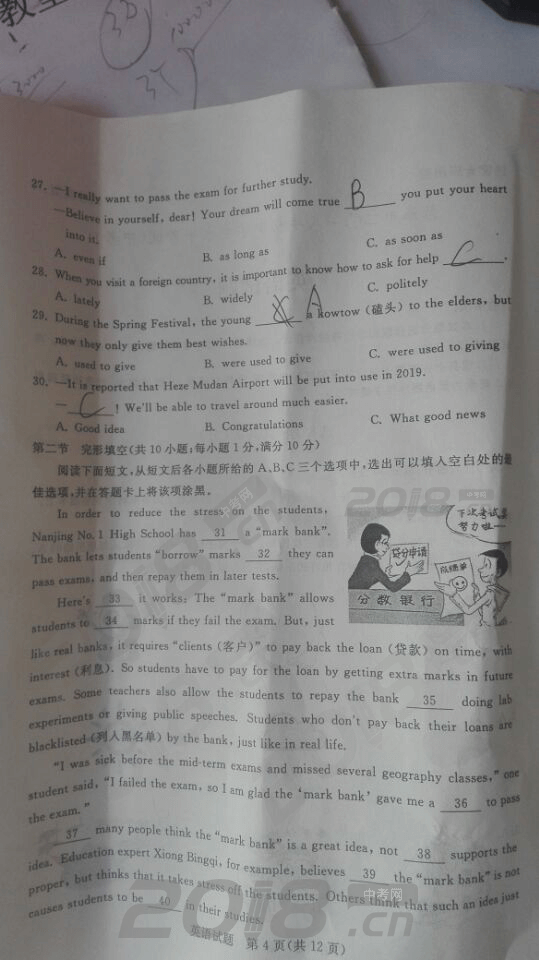 教室
30
3T
3000
27. —I really want to pass the exam for further study.
—Believe in yourself, dear! Your dream will come true B you put your heart
into it.
A. even if B. as long as C. as soon as
28. When you visit a foreign country, it is important to know how to ask for help C.
A. lately B. widely C. politely
29. During the Spring Festival, the young A a kowtow (磕头) to the elders, but
now they only give them best wishes.
A. used to give B. were used to give C. were used to giving
30. —It is reported that Heze Mudan Airport will be put into use in 2019.
— C ! We'll be able to travel around much easier.
A. Good idea B. Congratulations C. What good news
第二节 完形填空(共10小题;每小题1分,满分10分)
阅读下面短文,从短文后各小题所给的A、B、C三个选项中,选出可以填入空白处的最
佳选项,并在答题卡上将该项涂黑。
In order to reduce the stress on the students,
Nanjing No. 1 High School has 31 a “mark bank”.
The bank lets students “borrow” marks 32 they can
pass exams, and then repay them in later tests.
Here's 33 it works: The “mark bank” allows
students to 34 marks if they fail the exam. But, just
下次考试要
努力啦
贷分申请
成绩单
分数银行
like real banks, it requires “clients (客户)” to pay back the loan (贷款) on time, with
interest (利息). So students have to pay for the loan by getting extra marks in future
exams. Some teachers also allow the students to repay the bank 35 doing lab
experiments or giving public speeches. Students who don't pay back their loans are
blacklisted (列入黑名单) by the bank, just like in real life.
“I was sick before the mid-term exams and missed several geography classes,” one
student said, “I failed the exam, so I am glad the ‘mark bank’ gave me a 36 to pass
the exam.”
37 many people think the “mark bank” is a great idea, not 38 supports the
idea. Education expert Xiong Bingqi, for example, believes 39 the “mark bank” is not
proper, but thinks that it takes stress off the students. Others think that such an idea just
causes students to be 40 in their studies.
英语试题 第4页(共12页)
2018
中考网
2018 .cn